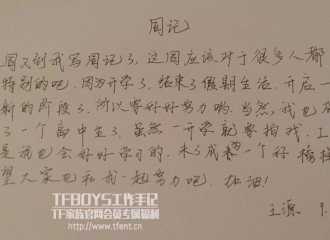 周记
周又到我写周记了,这周应该对于很多人都
特别的吧.因为开学了,结束了假期生活,开启一
新的阶段了,所以要好好努力哟.当然,我也成
了一个高中生了.虽然一开学就要拍戏.工
是我也会好好学习的.未了成为一个好榜样
望大家也和我一起努力吧.加油!
王源 9.
TFBOYS工作手记
TF家族官网会员专属福利
http://www.tfent.cn